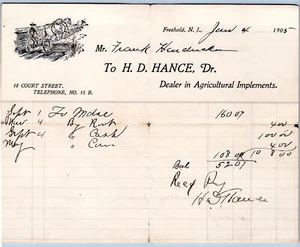 Freehold, N. J., Jan 4 1905
Mr. Frank Hendrickson
To H. D. HANCE, Dr.
18 COURT STREET.
TELEPHONE, NO. 15 B.
Dealer in Agricultural Implements.
Sept 1 To Mdse 160 07
4 By 4 00
Sept 4 " Cash 100 00
" Corn 4 00
108 00 108 00
Bal 52 07
Recd Pay
H D Hance